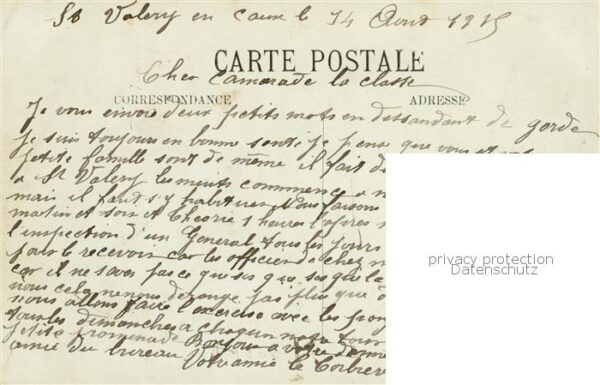 St Valery en Caux le 14 Aout 1915
CARTE POSTALE
Cher Camarade la classe
CORRESPONDANCE
ADRESSE
Je vous envoie deux petits mots en dessandant de garde
je suis toujours en bonne senté je pense que vous et
petite famille sont de même il fait
a St Valery les nuits commence a
mais il faut s'y habituer Nous faisons
matin et soir et théorie 1 heures l'apres
l'inspection d'un General tous les jours
pour le recevoir car les officier de chez
car il ne save pas ce que
nous cela ne nous derange pas plus que
nous allons faire l'exercise avec les
tous les dimanches a chaquun notre tour
petite promenade Bonjour a votre
amie du bureau Votre amie le
privacy protection
Datenschutz